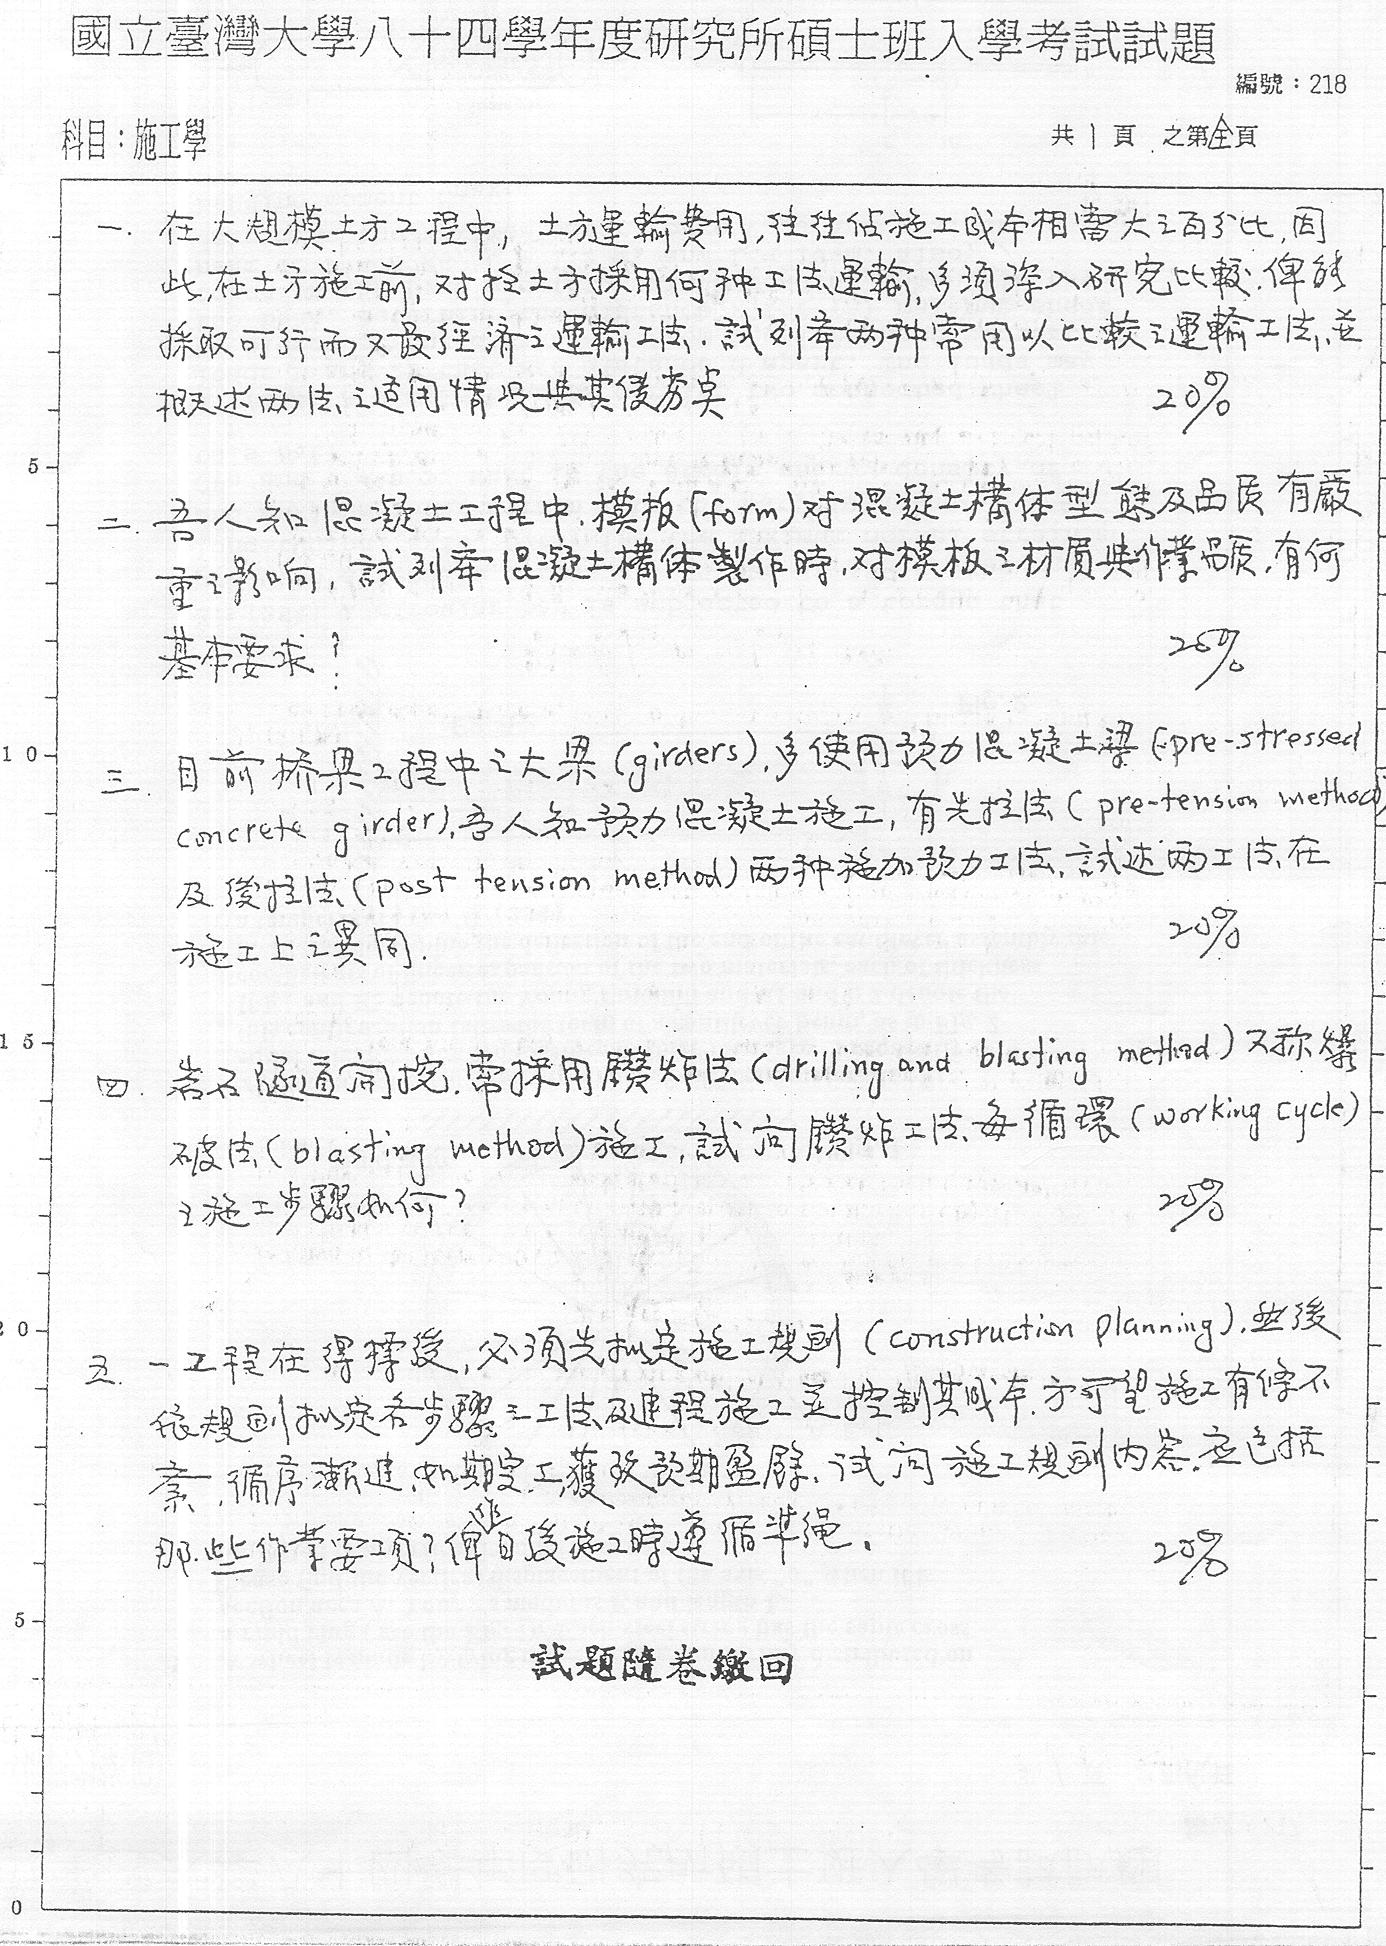 國立臺灣大學八十四學年度研究所碩士班入學考試試題
編號：218
科目：施工學
共 1 頁 之第全頁
一. 在大規模土方工程中, 土方運輸費用,往往佔施工成本相當大之百分比,因
此,在土方施工前,对於土方採用何种工法運輸,多須深入研究比較.俾能
採取可行而又最经濟之運輸工法.試列举两种常用以比較之運輸工法,並
概述两法之适用情況與其優劣点 20%
5
二. 吾人知混凝土工程中.模板(form)对混凝土構体型態及品质有嚴
重之影响,試列举混凝土構体製作時,对模板之材質與作業品质,有何
基本要求? 20%
10
三. 目前桥梁工程中之大梁(girders),多使用预力混凝土梁(pre-stressed
concrete girder),吾人知预力混凝土施工,有先拉法(pre-tension method)
及後拉法(post tension method)两种施加预力工法,試述两工法在
施工上之異同. 20%
15
四. 岩石隧道開挖.常採用鑽炸法(drilling and blasting method)又称爆
破法(blasting method)施工,試问鑽炸工法每循環(working cycle)
之施工步驟如何? 20%
20
五. 一工程在得標後,必須先拟定施工規劃(construction planning),然後
依規劃拟定各步驟之工法及進程施工並控制其成本.方可望施工有條不
紊,循序漸進,如期完工,獲致预期盈餘.试问施工規劃内容,应包括
那些作業要項?俾作日後施工時遵循準绳.
20%
5
試題隨卷繳回
0